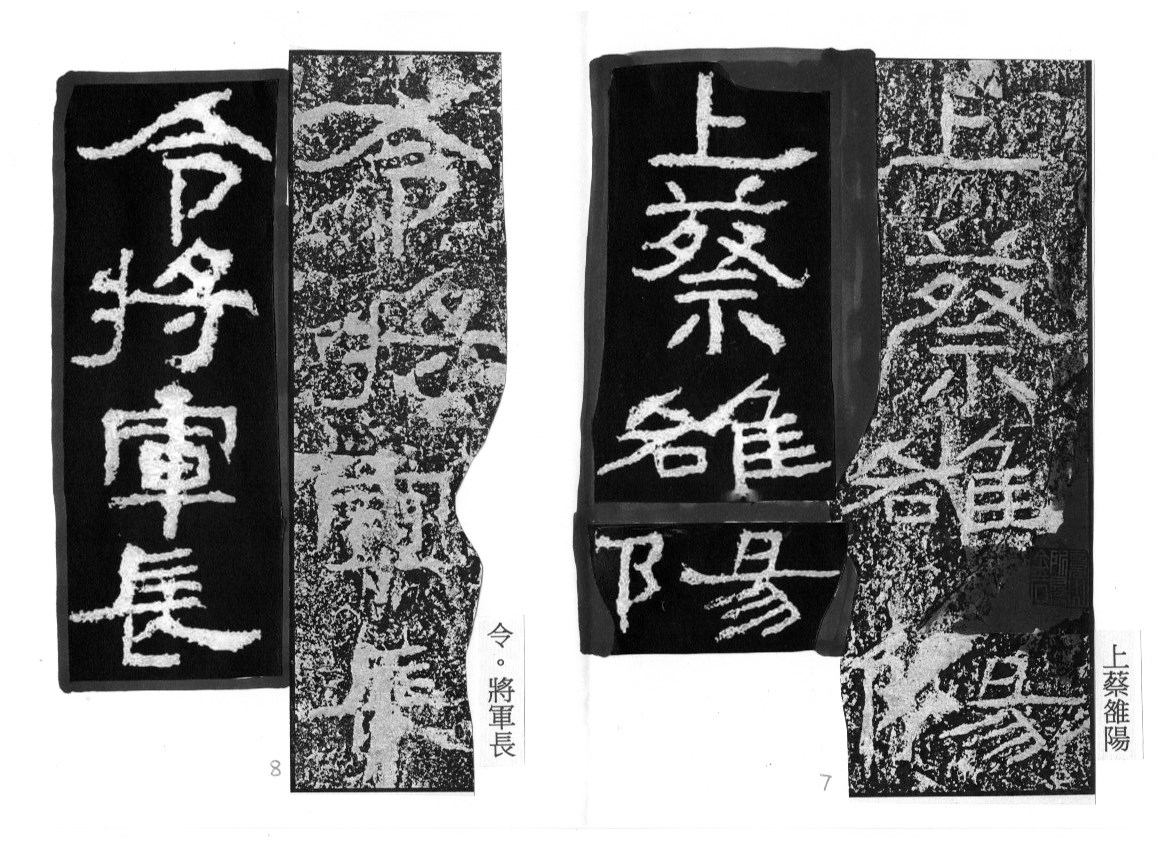 上蔡雒陽
上蔡雒陽
上蔡雒陽
7
令。將軍長
令將軍長
令將軍長
8